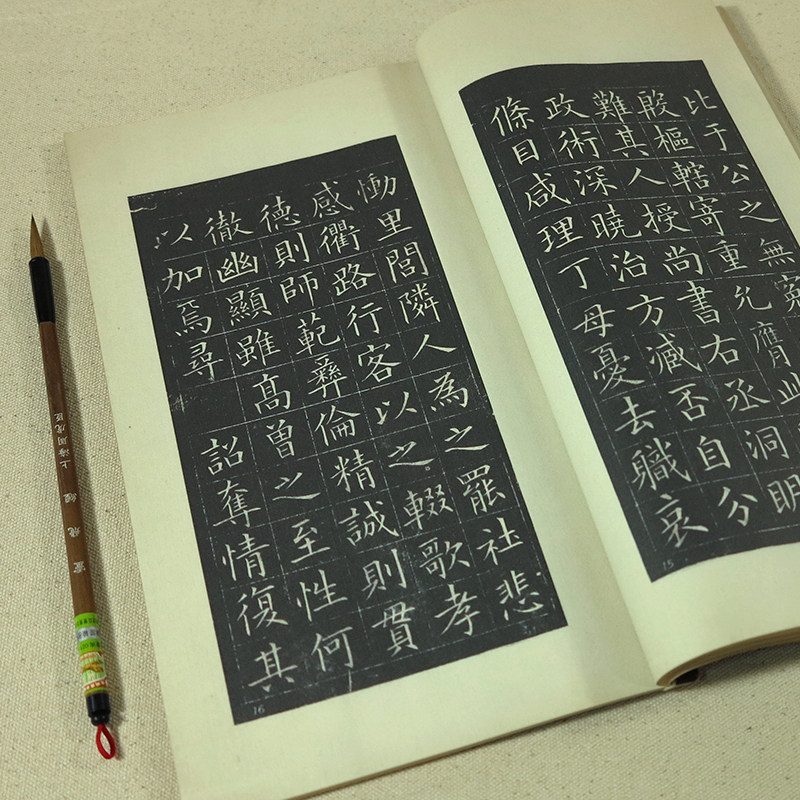 比于公之無冤
殿樞轄寄重允膺此
難其人授尚書右丞洞明
政術深曉治方臧否自分
條目咸理丁母憂去職哀
15
慟里閭隣人為之罷社悲
感衢路行客以之輟歌孝
德則師範彝倫精誠則貫
徹幽顯雖髙曾之至性何
以加焉尋詔奪情復其
16
上海周虎臣